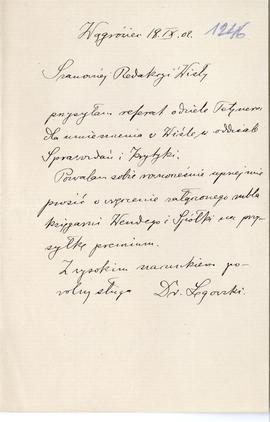 Wągrówiec 18.IX.01.
1246
Szanownej Redakcyi Wisły
przysyłam referat o dziele Tetznera
dla umieszczenia w Wiśle, w oddziale
Sprawozdań i Krytyki.
Pozwalam sobie równocześnie uprzejmie
prosić o załączonego rubla
księgarni Wendego i Spółki na prze-
syłkę premium.
Z wysokim szacunkiem po-
wolny sługa Dr. Łęgowski.